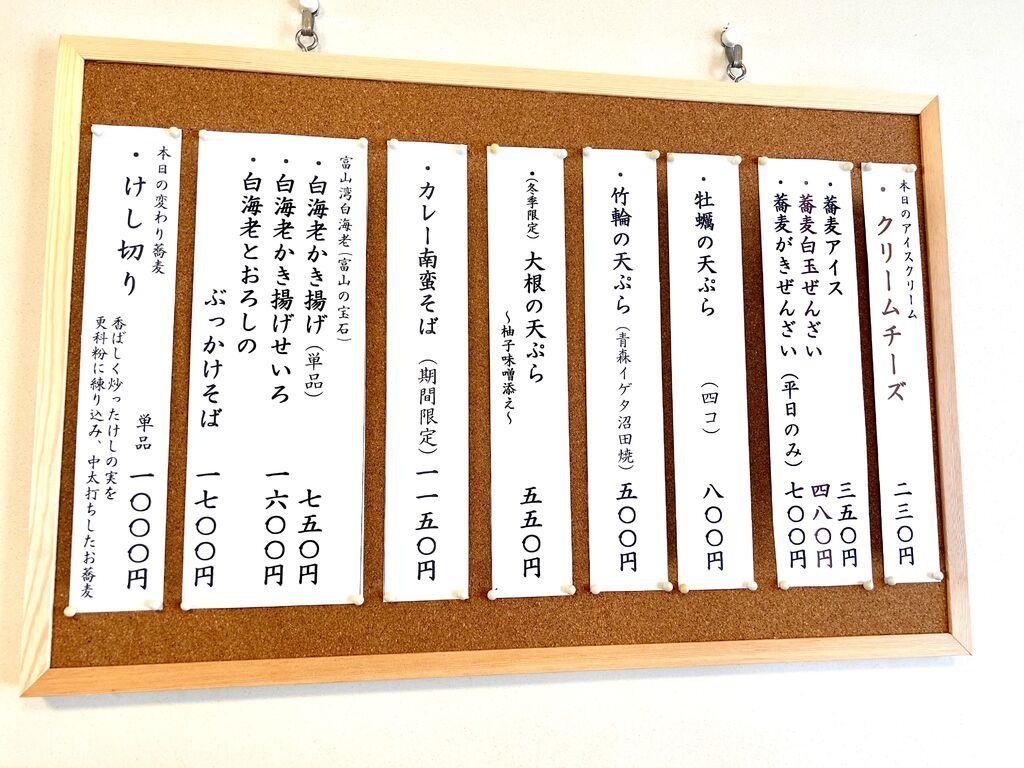 本日のアイスクリーム
・クリームチーズ 二三〇円
・蕎麦アイス 三五〇円
・蕎麦白玉ぜんざい 四八〇円
・蕎麦がきぜんざい（平日のみ） 七〇〇円
牡蠣の天ぷら （四コ） 八〇〇円
・竹輪の天ぷら（青森イゲタ沼田焼） 五〇〇円
・（冬季限定）大根の天ぷら 五五〇円
～柚子味噌添え～
・カレー南蛮そば （期間限定） 一一五〇円
富山湾白海老（富山の宝石）
・白海老かき揚げ（単品） 七五〇円
・白海老かき揚げせいろ 一六〇〇円
・白海老とおろしの
ぶっかけそば 一七〇〇円
本日の変わり蕎麦
・けし切り 単品 一〇〇〇円
香ばしく炒ったけしの実を
更科粉に練り込み、中太打ちしたお蕎麦